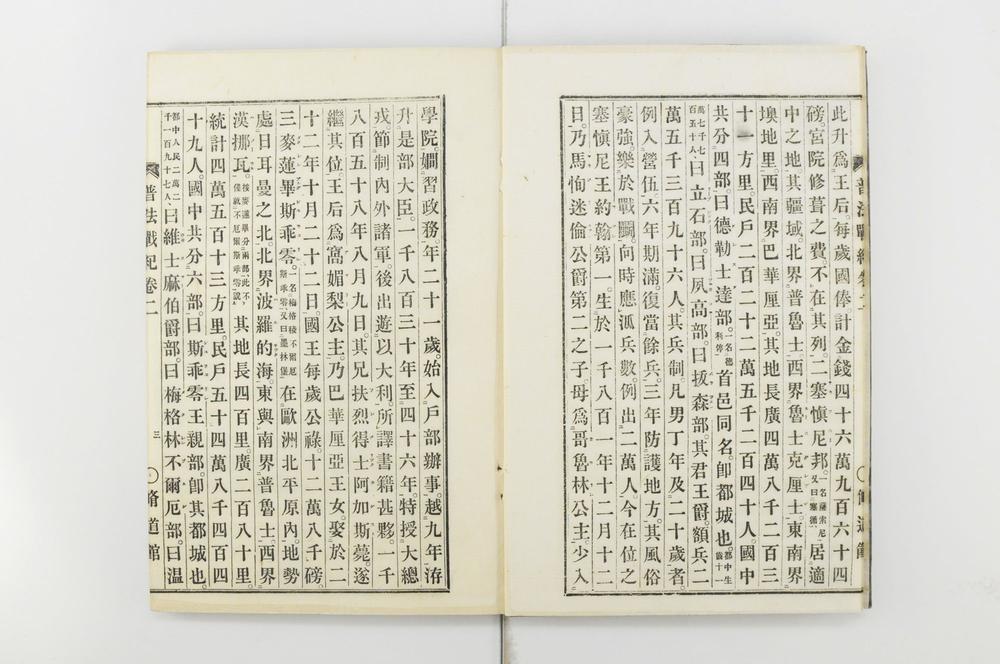 此升爲王后每歲國俸計金錢四十六萬九百六十四
磅宮院修葺之費不在其列二塞愼尼邦一名薩索尼又曰塞循居適
中之地其疆域北界普魯士西界魯士克厘士東南界
墺地里西南界巴華厘亞其地長廣四萬八千二百三
十一方里民戶二百二十二萬五千二百四十人國中
共分四部曰德勒士達部一名德利停首邑同名卽都城也都中生齒十一
萬七千七百五十人曰立石部曰夙高部曰拔森部其君王爵額兵二
萬五千三百九十六人其兵制凡男丁年及二十歲者
例入營伍六年期滿復當餘兵三年防護地方其風俗
豪強樂於戰鬪向時應派兵數例出二萬人今在位之
塞愼尼王約翰第一生於一千八百一年十二月十二
日乃馬恂迷倫公爵第二之子母爲哥魯林公主少入
普法戰紀卷二
脩道館
學院嫻習政務年二十一歲始入戶部辦事越九年洊
升是部大臣一千八百三十年至四十六年特授大總
戎節制內外諸軍後出遊以大利所譯書籍甚夥一千
八百五十八年八月九日其兄扶烈得士阿加斯薨遂
繼其位王后爲窩媚梨公主乃巴華厘亞王女娶於二
十二年十月二十二日國王每歲公祿十二萬八千磅
三麥蓮畢斯乖零一名梅格稜不爾厄斯乖零又曰墨林堡在歐洲北平原內地勢
處日耳曼之北北界波羅的海東與南界普魯士西界
漢挪瓦按麥蓮畢分兩部此不僅就不厄爾斯乖零說其地長四百里廣二百八十里
統計四萬五百十三方里民戶五十四萬八千四百四
十九人國中共分六部曰斯乖零王親部卽其都城也
都中人民二萬二千一百九十七人曰維士麻伯爵部曰梅格林不爾厄部曰溫
普法戰紀卷二
三
脩道館